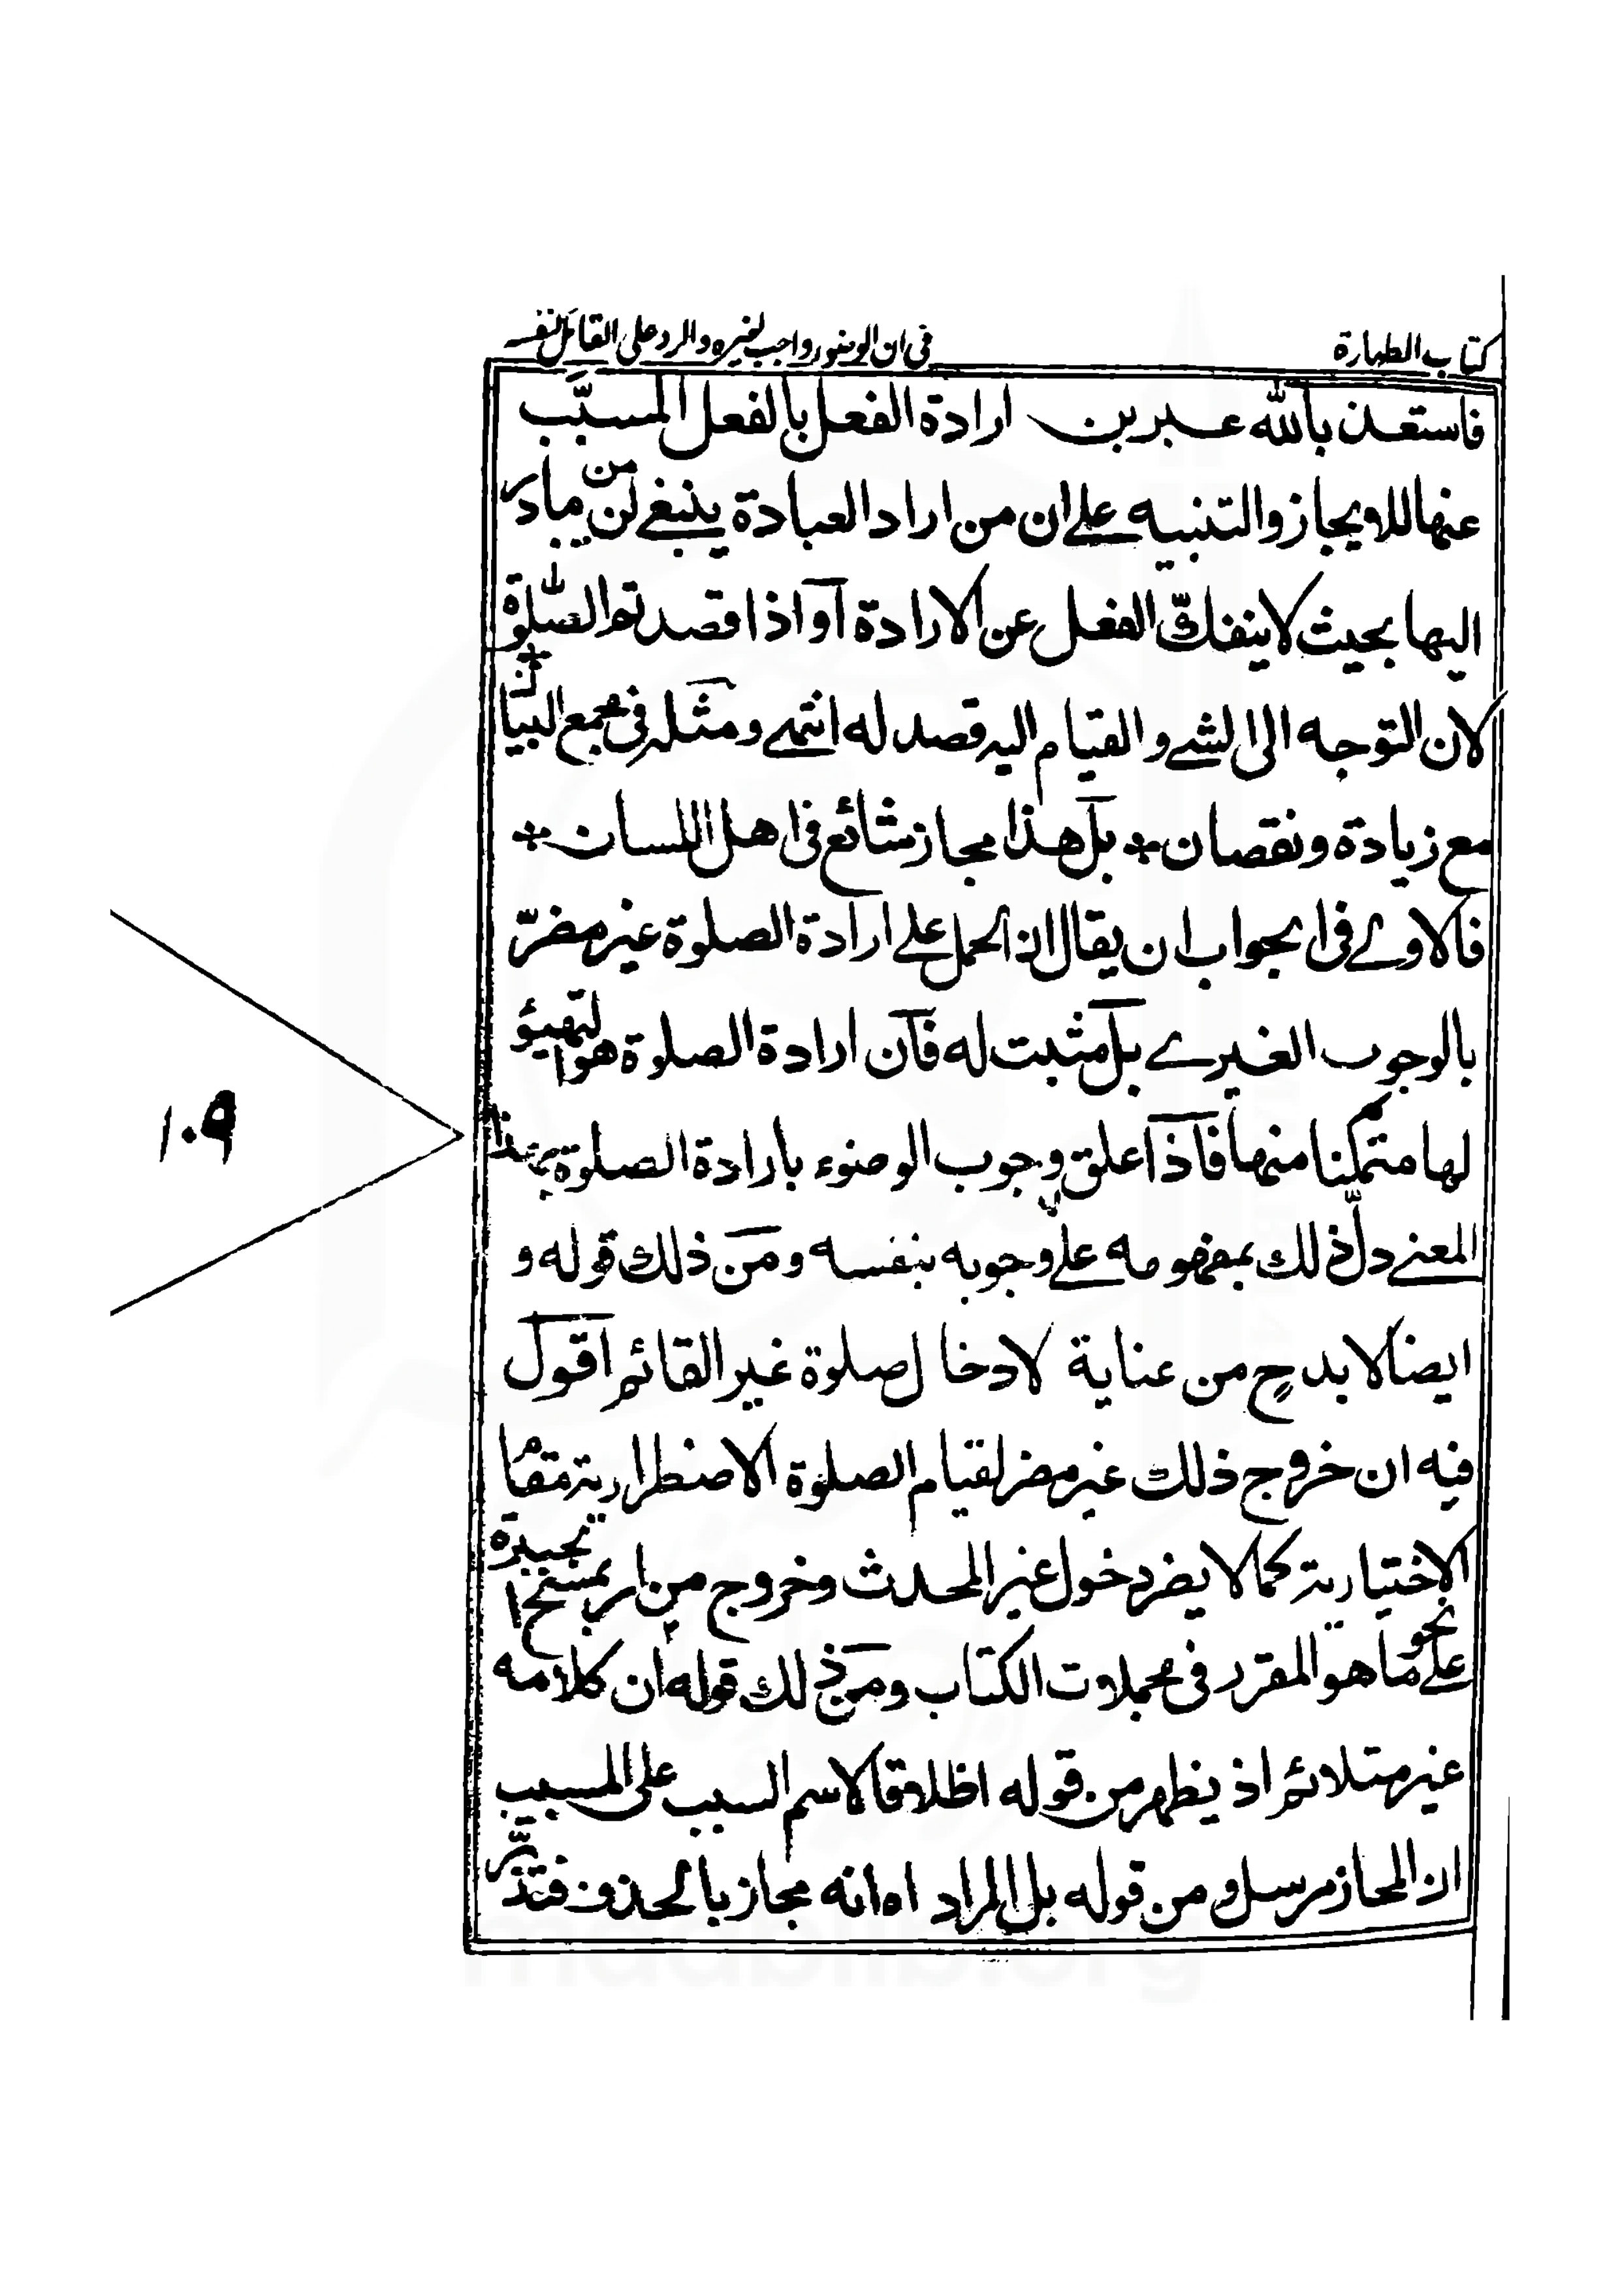 كتاب الطهارة في ان الوضوء واجب لغيره والرد على القائل لنفسه
فاستعذ بالله عبر بن ارادة الفعل بالفعل المسبَّب
عنها للايجاز والتنبيه على ان من اراد العبادة ينبغي لن من يبادر
اليها بحيث لا ينفكّ الفعل عن الارادة آو اذا قصدتم الصّلوة
لان التوجه الى الشي والقيام اليه قصد له انتهى ومثله في مجمع البيان
مع زيادة ونقصان * بل هذا مجاز شائع في اهل اللسان *
فالاولى في الجواب ان يقال ان الحمل على ارادة الصلوة غير مضرّ
بالوجوب الغيري بل مثبت له فان ارادة الصلوة هو التهيؤ
لها متمكنا منها فاذا علق وجوب الوضوء بارادة الصلوة بهذا
المعنى دلّ ذلك بمفهومه على وجوبه بنفسه ومن ذلك قوله و
ايضا لا بد ح من عناية لادخال صلوة غير القائم اقول
فيه ان خروج ذلك غير مضر لقيام الصلوة الاضطرارية مقام
الاختيارية كما لا يضر دخول غير المحدث وخروج من امر بمسح الجبيرة
على نحو ما هو المقرر في مجملات الكتاب ومن ذلك قوله ان كلامه
غير متلائم اذ يظهر من قوله اطلاقا لاسم السبب على المسبب
ان المجاز مرسل ومن قوله بل المراد اه انه مجاز بالحذف فتدبّر
١٠٩
maablib.org